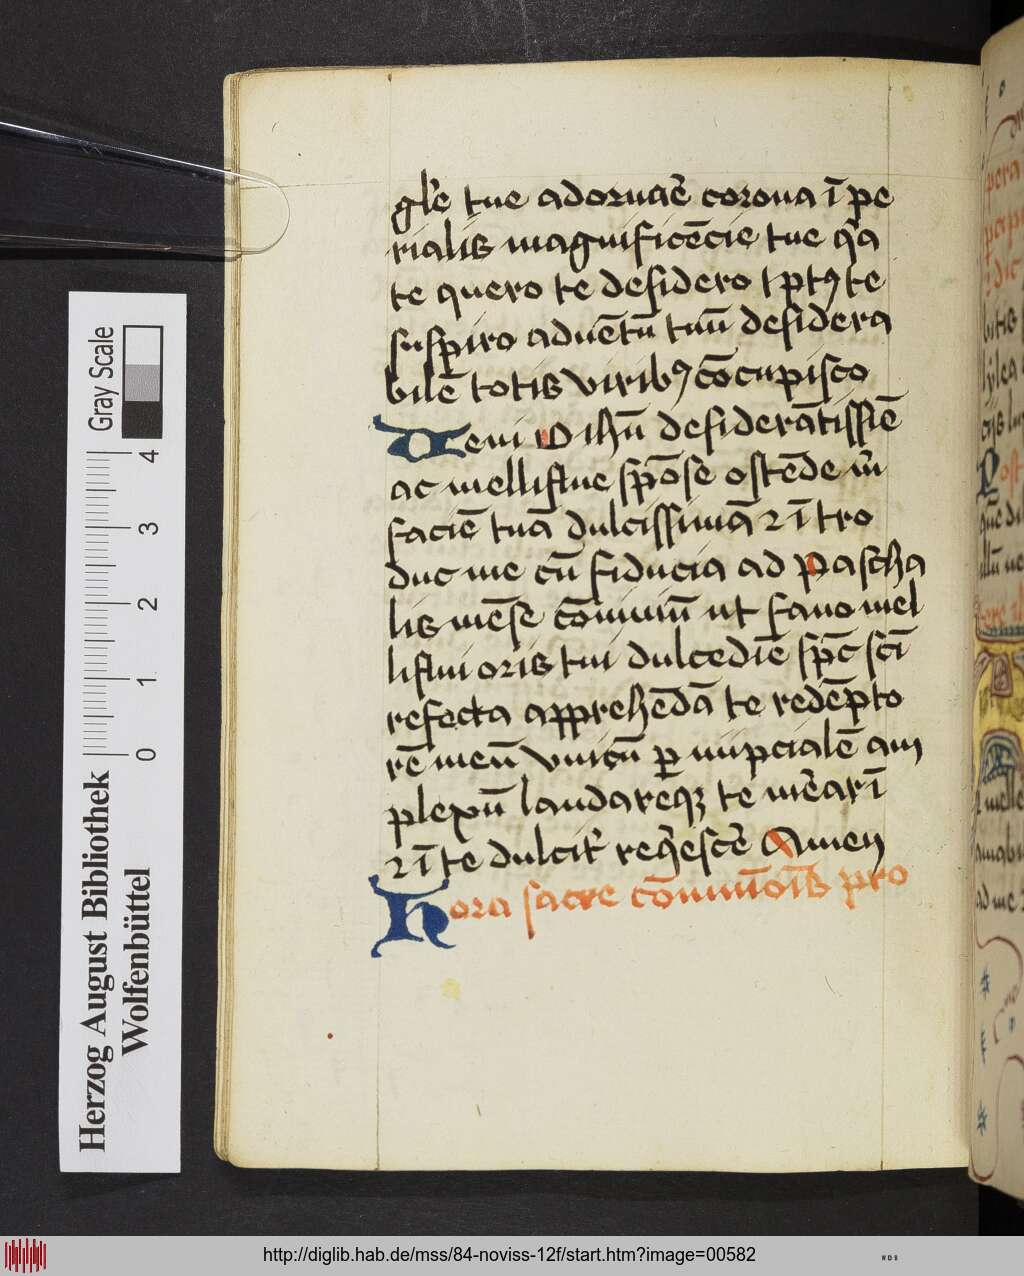 głe tue adornatē corona ī pe
rialis magnificēcie tue qͣa
te quero te desidero τ ptꝰ te
suspiro aduētū tuū desidera
bilē totis viribꝰ cōcupisco
Ueni O ihū desiderātissiē
ac melliflue spōse ostēde m̄
faciē tuā dulcissimā ⁊ ī tro
duc me cū fiducia ad pascha
lis mēse cōuiuiū ut fauo mel
liflui oris tui dulcedīe spc̄ scī
refecta apprehēdā te redēpto
rē meū vnicū ꝑ nupcialē am
plexū laudareqꝫ te mēarī
⁊ ī te dulcit̓ reqͥescē Amen
Hora sacre cōmuniōis pro
Herzog August Bibliothek
Wolfenbüttel
0 1 2 3 4
Gray Scale
http://diglib.hab.de/mss/84-noviss-12f/start.htm?image=00582